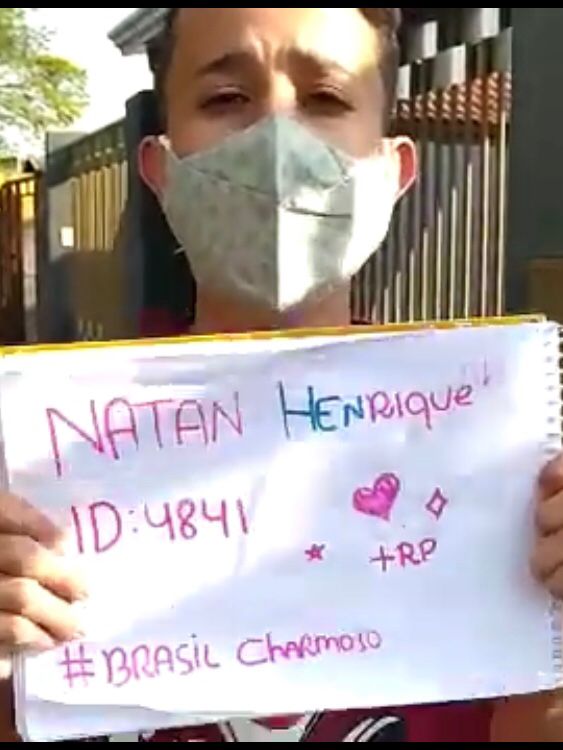 NATAN HENRIQUE
ID:4841
+RP
#BRASIL CHARMOSO